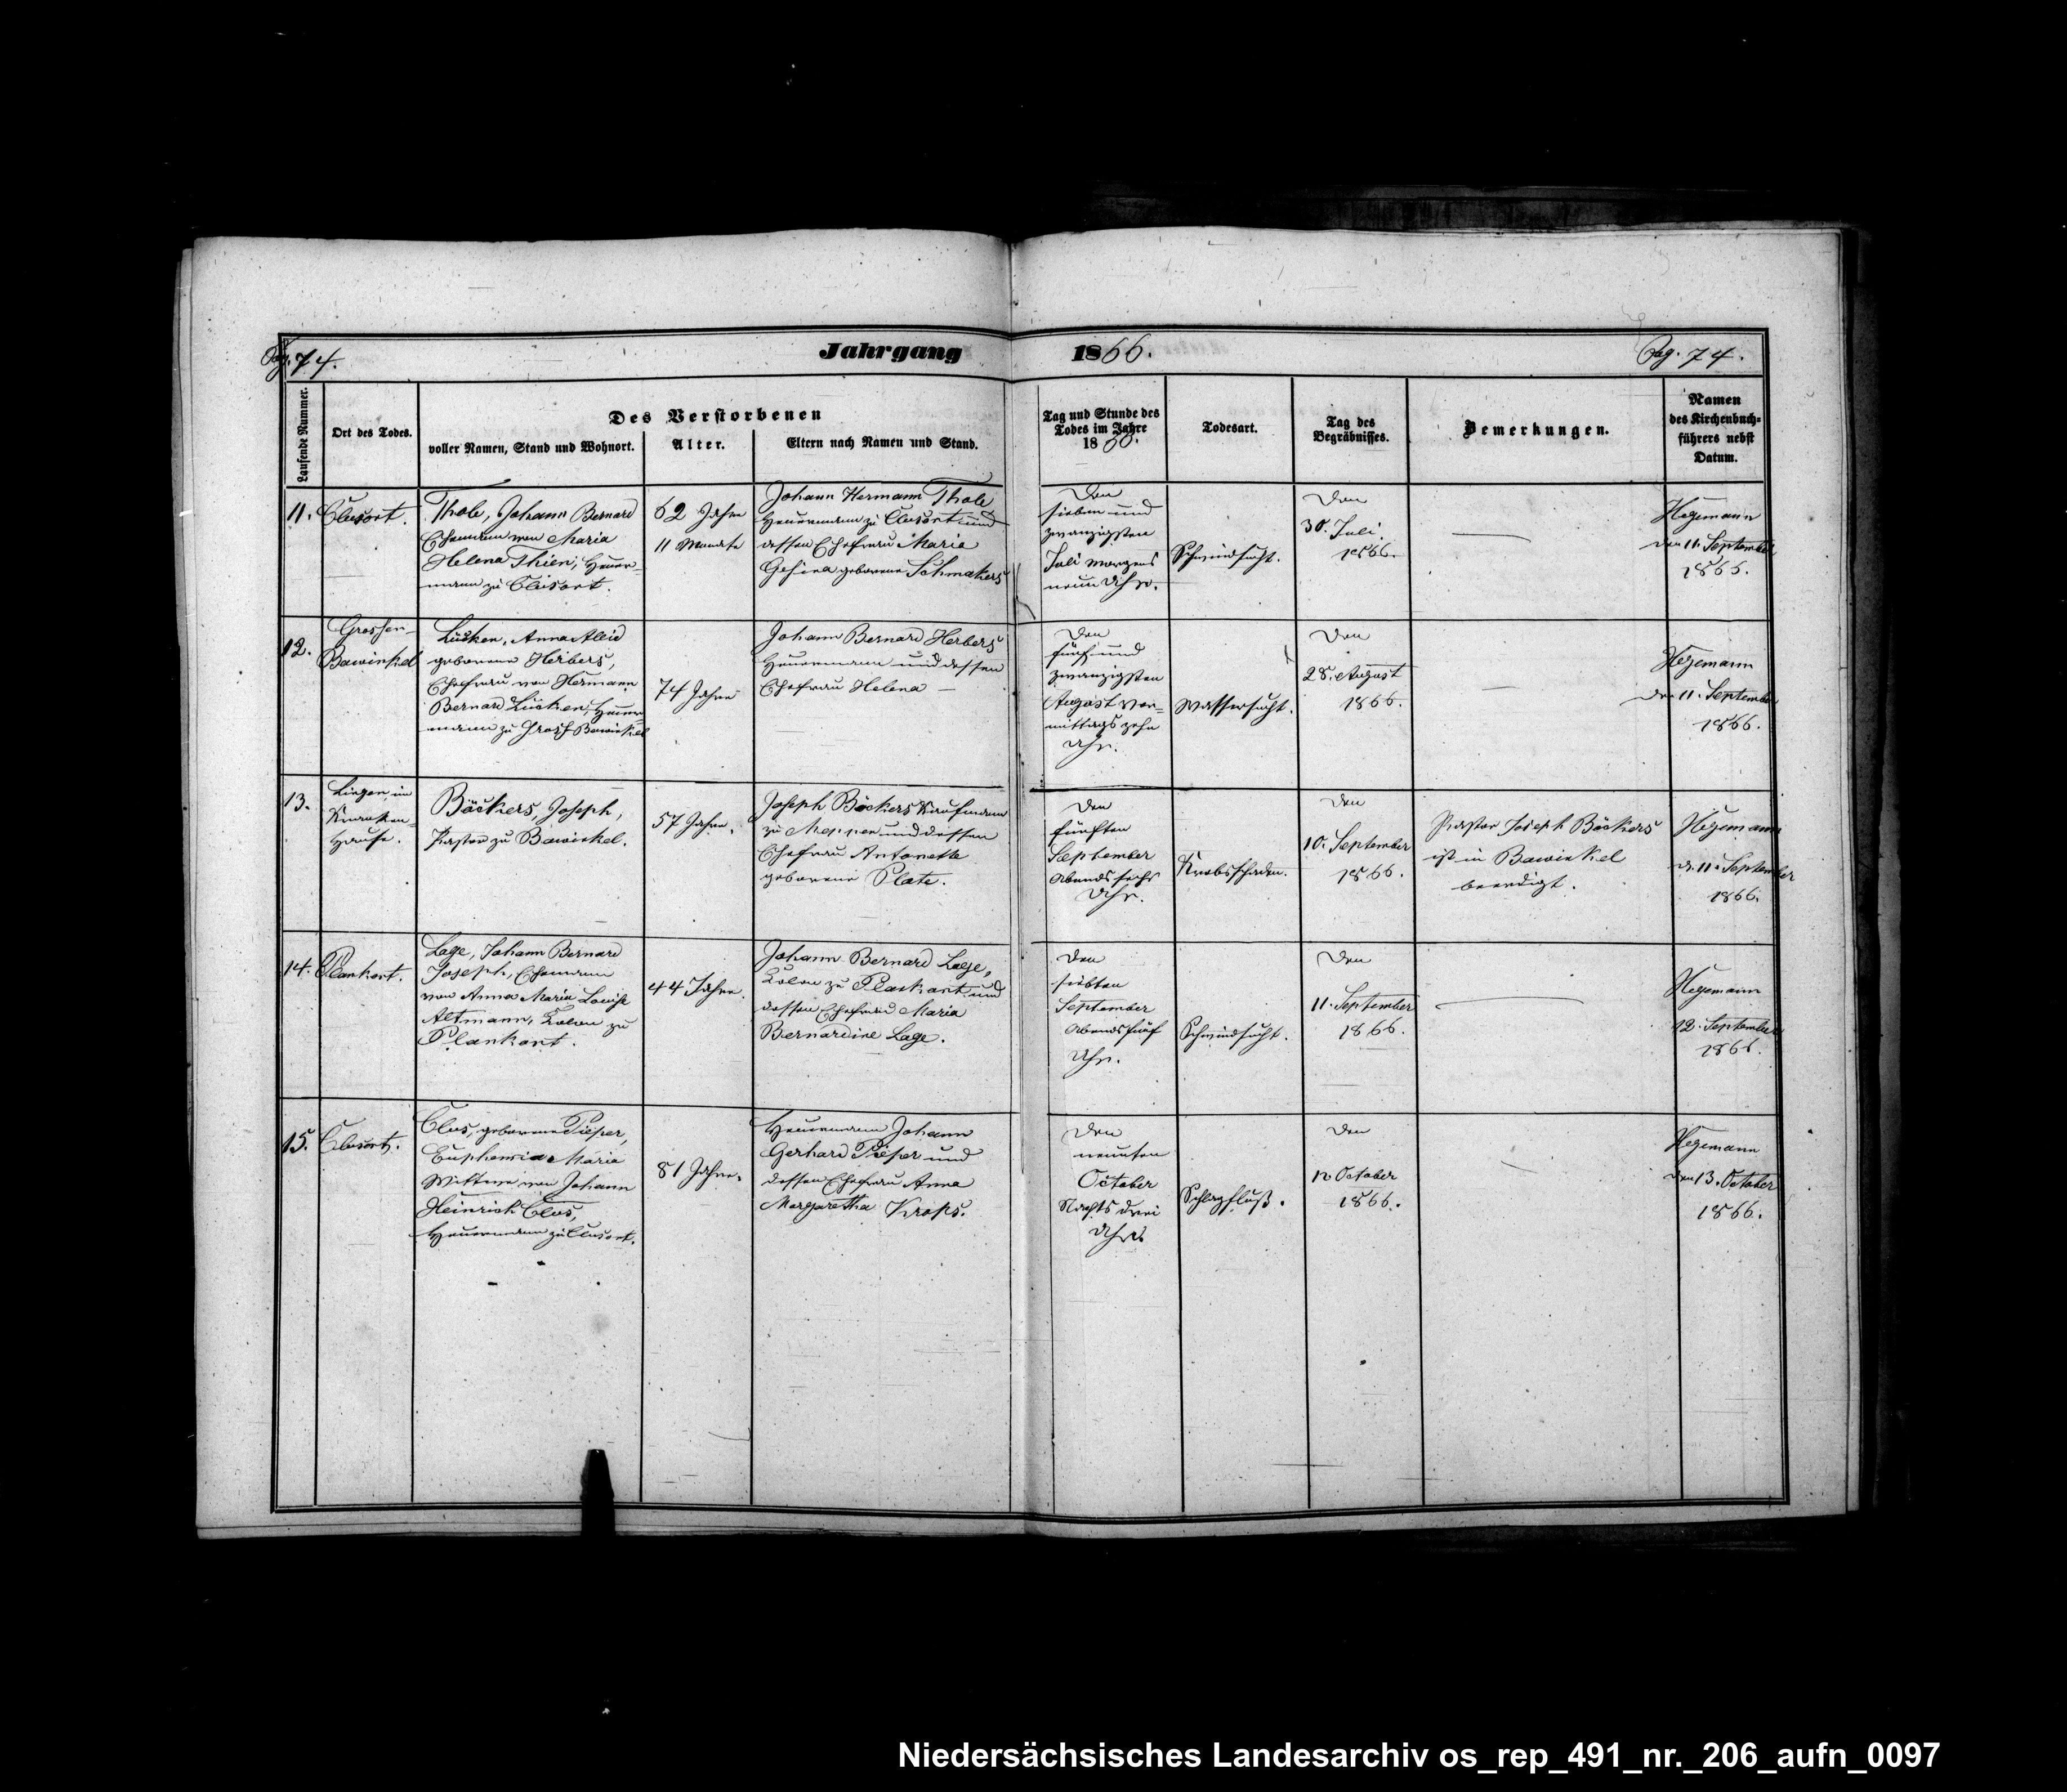 Pag. 74.
Jahrgang 1866.
Pag. 74.
Laufende Nummer.
Ort des Todes.
Des Verstorbenen
voller Namen, Stand und Wohnort.
Alter.
Eltern nach Namen und Stand.
Tag und Stunde des
Todes im Jahre
1866.
Todesart.
Tag des
Begräbnisses.
Bemerkungen.
Namen
des Kirchenbuch-
führers nebst
Datum.
11.
Clusort.
Thole, Johann Bernard
Ehemann von Maria
Helena Thien, Heuer-
mann zu Clusort.
62 Jahre
11 Monate
Johann Hermann Thole
Heuermann zu Clusort und
dessen Ehefrau Maria
Gesina geborene Schmakers
Den
sieben und
zwanzigsten
Juli morgens
neun Uhr.
Schwindsucht.
Den
30. Juli.
1866.
Hegemann
den 11. September
1866.
12.
Grossen-
Bawinkel
Lüsken, Anna Aleid
geborene Herbers,
Ehefrau von Hermann
Bernard Lüsken, Heuer-
mann zu Gross Bawinkel
74 Jahre
Johann Bernard Herbers
Heuermann und dessen
Ehefrau Helena —
Den
fünf und
zwanzigsten
August vor-
mittags zehn
Uhr.
Wassersucht.
Den
28. August
1866.
Hegemann
den 11. September
1866.
13.
Lingen im
Kranken-
hause.
Bäckers, Joseph,
Pastor zu Bawinkel.
57 Jahre.
Joseph Bäckers Kaufmann
zu Meppen und dessen
Ehefrau Antonetta
geborene Plate.
Den
fünften
September
Abends sechs
Uhr.
Krebsschaden.
Den
10. September
1866.
Pastor Joseph Bäckers
ist in Bawinkel
beerdigt.
Hegemann
d. 11. September
1866.
14.
Plankort.
Lage, Johann Bernard
Joseph, Ehemann
von Anna Maria Louise
Altmann, Kolon zu
Plankort.
44 Jahre.
Johann Bernard Lage,
Kolon zu Plankort und
dessen Ehefrau Maria
Bernardine Lage.
Den
siebten
September
Abends fünf
Uhr.
Schwindsucht.
Den
11. September
1866.
Hegemann
12. September
1866.
15.
Clusort.
Clus, geborene Pieper,
Euphemia Maria
Wittwe von Johann
Heinrich Clus,
Heuermann zu Clusort.
81 Jahre.
Heuermann Johann
Gerhard Pieper und
dessen Ehefrau Anna
Margaretha Krops.
Den
neunten
October
Nachts drei
Uhr.
Schlagfluß.
Den
12 October
1866.
Hegemann
den 13. October
1866.
Niedersächsisches Landesarchiv os_rep_491_nr._206_aufn_0097